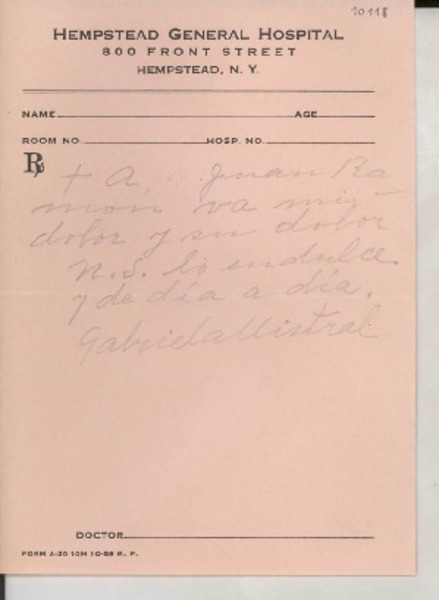 10118
HEMPSTEAD GENERAL HOSPITAL
800 FRONT STREET
HEMPSTEAD, N. Y.
NAME AGE
ROOM NO HOSP. NO.
℞ + A, Juan Ra
mon va mi
dolor y su dolor
N.S. lo endulce
y de día a día.
Gabriela Mistral
DOCTOR
FORM A-20 10M 10-56 R. P.